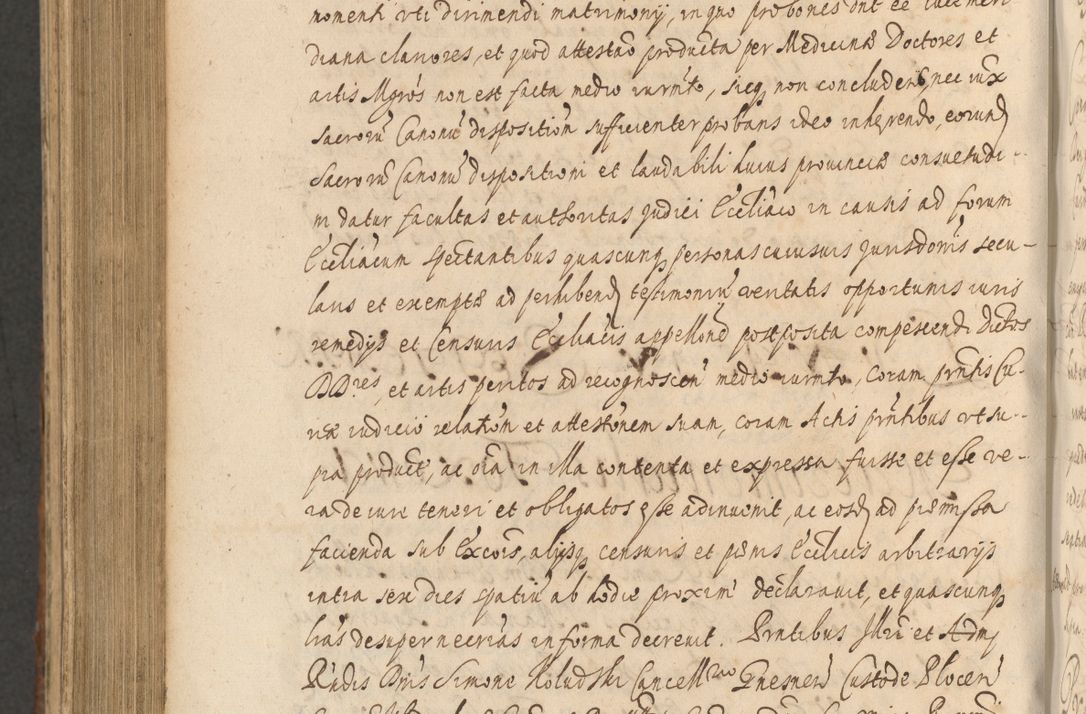 momenti uti dirimendi matrimonij, in quo probones dnt ee luce meri
diana clariores, et quod attestao producta per Medicinæ Doctores et
artis Mgrós non est facta medio iurmto, sicq non concludens, nec iux
Sacrorũ Canonũ disposition sufficienter probans ideo inhærendo, eorund
Sacrorũ Canonũ dispositioni et laudabili huius prouinciæ consuetudi-
ni datur facultas et authoritas Judici Ecclíaco in causis ad forum
Ecclíacum spectantibus quascunq personas cuiusuis jurisdónis secu-
laris et exemptæ ad perhibend testimoniũ veritatis opportunis iuris
remedijs et Censuris Ecclíacis appellone postposita compescendi dictos
DD.res, et artis peritos ad recognoscen medio iurmto, coram prntis Cu-
riæ iudicio relation et attestonem suam, coram Actis prntibus vt su-
pra product, ac oia in illa contenta et expressa fuisse et esse ve-
ra de iure teneri et obligatos esse adinuenit, ac eosd ad præmissa
facienda sub Excois, alijsq censuris et pænis Ecclicis arbitrarijs
intra sex dies spatiũ ab hodie proxim declarauit, et quascunq
lras desuper necrias in forma decreuit. Prntibus Illri et Adm
Rndis Dnis Simone Holudzki Cancell.rio Gnesnen Custode Plocen